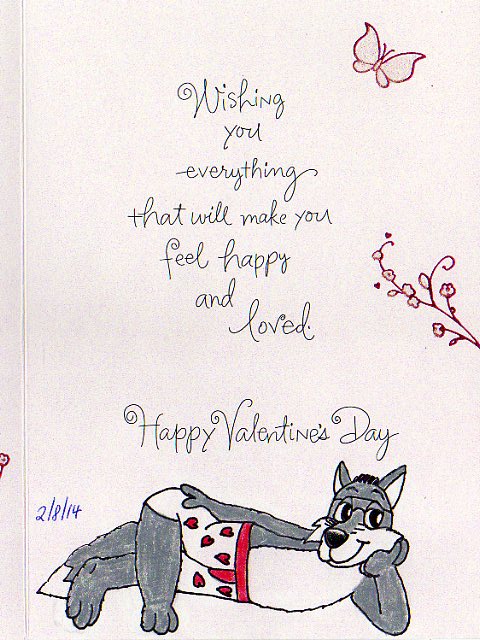 Wishing
you
everything
that will make you
feel happy
and
loved.
Happy Valentine's Day
2/8/14